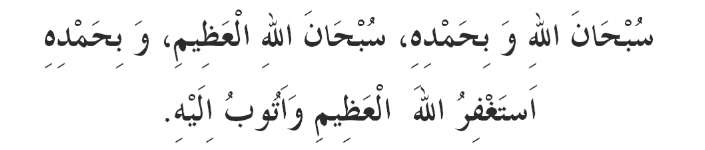 سُبْحَانَ اللهِ وَ بِحَمْدِهِ، سُبْحَانَ اللهِ الْعَظِيمِ، وَ بِحَمْدِهِ
اَستَغْفِرُ اللهَ الْعَظِيمِ وَاَتُوبُ اِلَيْهِ.